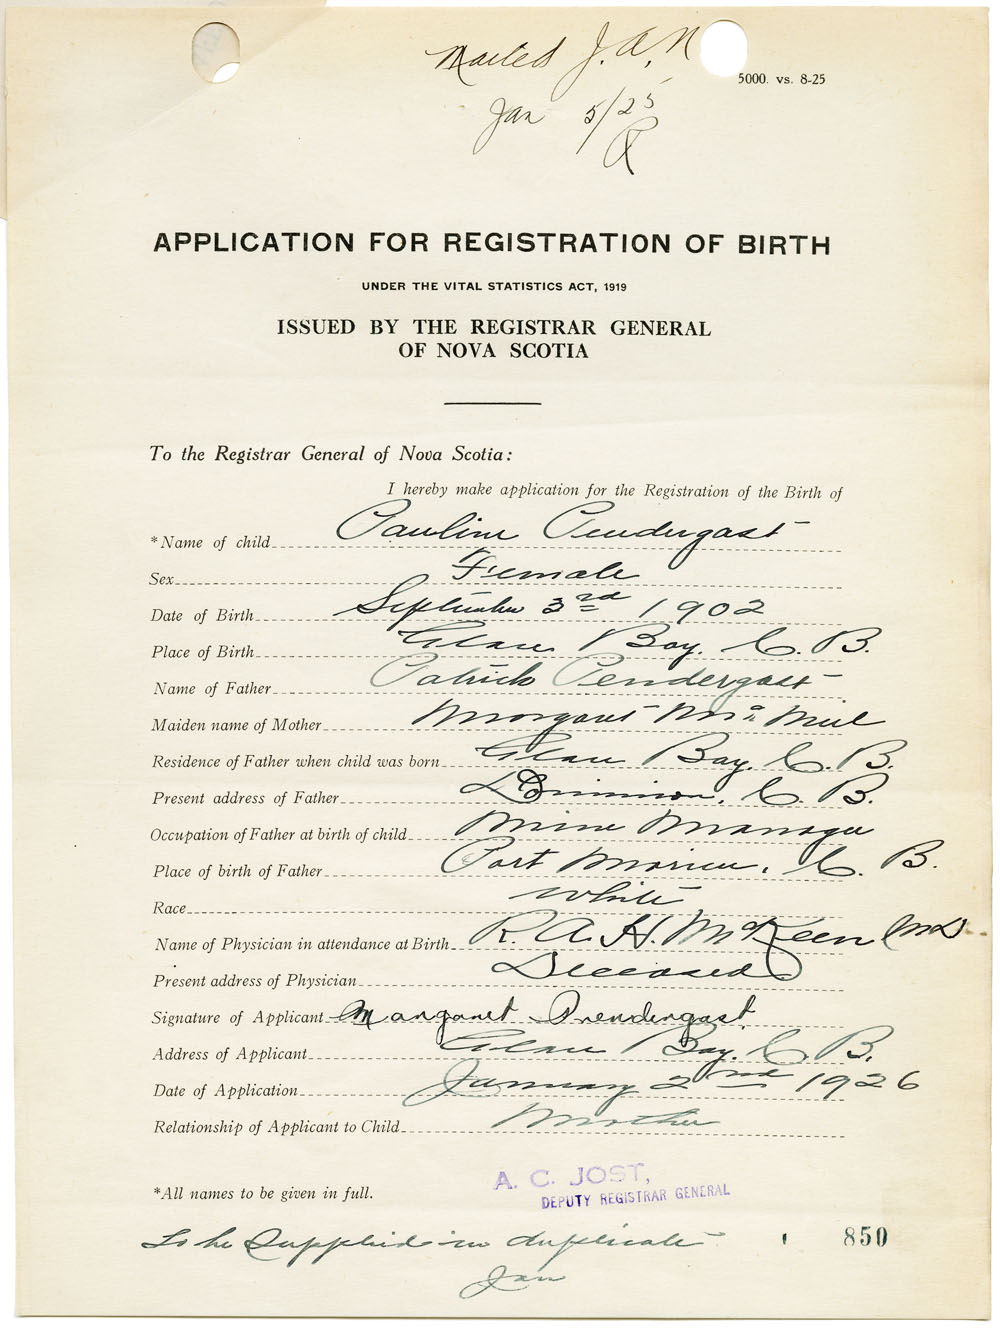 Mailed J. A. N
5000. vs. 8-25
Jan 5/25
R
APPLICATION FOR REGISTRATION OF BIRTH
UNDER THE VITAL STATISTICS ACT, 1919
ISSUED BY THE REGISTRAR GENERAL
OF NOVA SCOTIA
To the Registrar General of Nova Scotia:
I hereby make application for the Registration of the Birth of
*Name of child Pauline Pendergast
Sex Female
Date of Birth September 3rd 1902
Place of Birth Glace Bay. C. B.
Name of Father Patrick Pendergast
Maiden name of Mother Margaret
Residence of Father when child was born Glace Bay. C. B.
Present address of Father Dominion, C. B.
Occupation of Father at birth of child Mine Manager
Place of birth of Father Port Morien, C. B.
Race White
Name of Physician in attendance at Birth R. A. H. McKeen MD
Present address of Physician Deceased
Signature of Applicant Margaret Prendergast
Address of Applicant Glace Bay. C. B.
Date of Application January 2nd 1926
Relationship of Applicant to Child Mother
A. C. JOST,
*All names to be given in full.
DEPUTY REGISTRAR GENERAL
To be supplied in duplicate
850
Jan